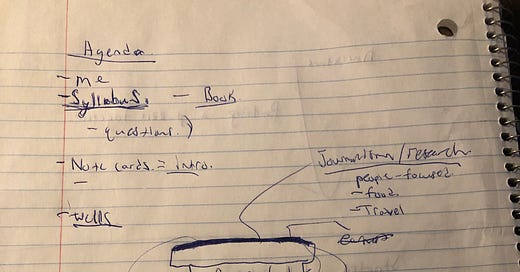 Agenda
- me
- Syllabus. - Book
- questions.)
- Note cards = intro.
-
- Wells
Journalism/research
people-focused
- food
- Travel